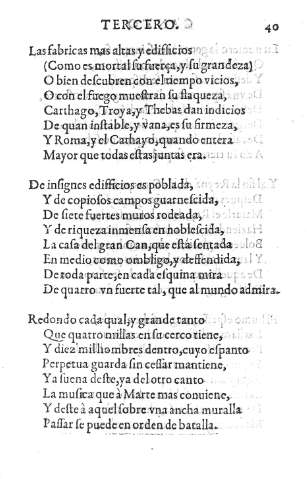 TERCERO. 40
Las fabricas mas altas y edificios
(Como es mortal su fuerça, y su grandeza)
O bien descubren con el tiempo vicios,
O con el fuego muestran su flaqueza,
Carthago, Troya, y Thebas dan indicios
De quan instable, y vana, es su firmeza,
Y Roma, y el Cathayo, quando entera
Mayor que todas estas juntas era.
De insignes edifficios es poblada,
Y de copiosos campos guarnescida,
De siete fuertes muros rodeada,
Y de riqueza inmensa ennoblescida,
La casa del gran Can, que està sentada
En medio como ombligo, y deffendida,
De toda parte, en cada esquina mira
De quatro vn fuerte tal, que al mundo admira.
Redondo cada qual, y grande tanto
Que quatro millas en su cerco tiene,
Y diez mil hombres dentro, cuyo espanto
Perpetua guarda sin cessar mantiene,
Ya suena deste, ya del otro canto
La musica que à Marte mas conuiene,
Y deste à aquel sobre vna ancha muralla
Passar se puede en orden de batalla.